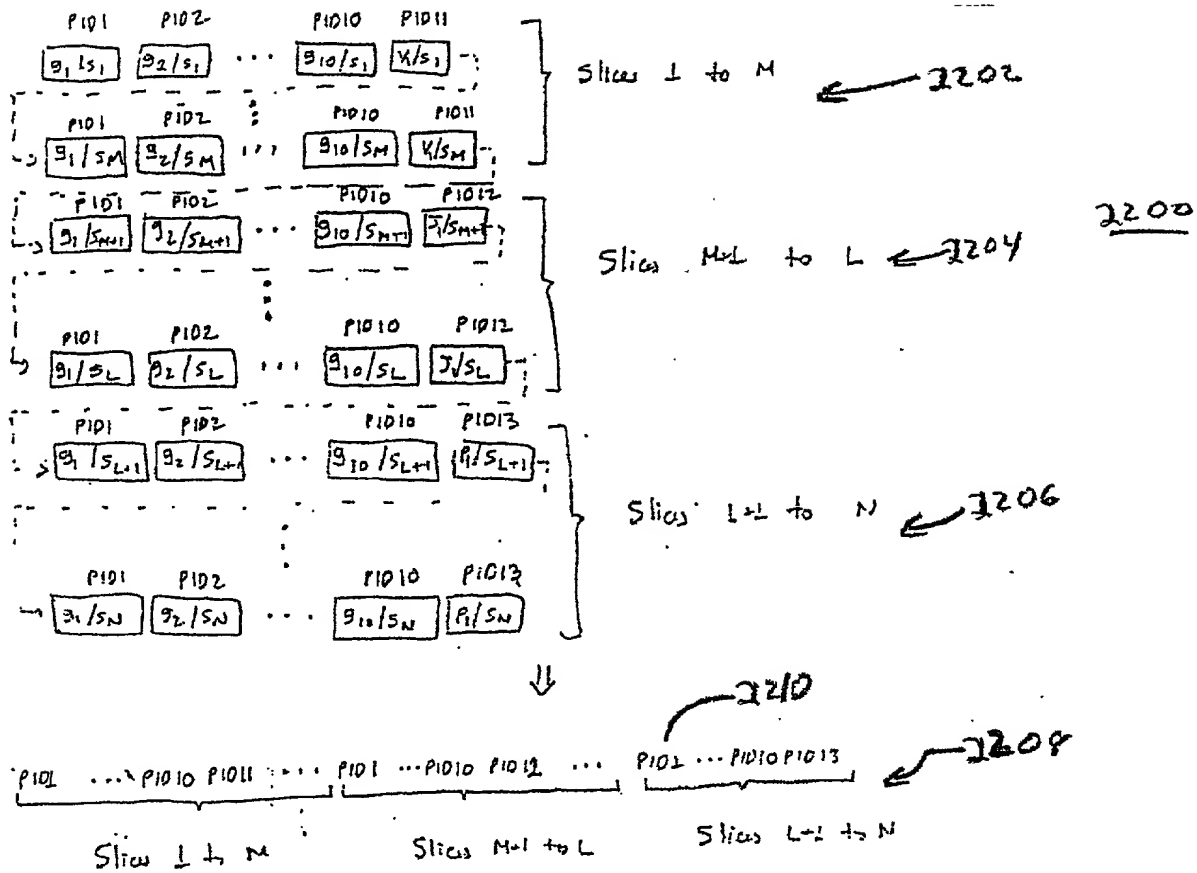 PID1 PID2 PID10 PID11
g1/s1 g2/s1 ... g10/s1 K/s1
Slices 1 to M
2202
PID1 PID2 PID10 PID11
g1/SM g2/SM ... g10/SM K/SM
PID1 PID2 PID10 PID12
g1/SM+1 g2/SM+1 ... g10/SM+1 J1/SM+1
2200
Slices M+1 to L
2204
PID1 PID2 PID10 PID12
g1/SL g2/SL ... g10/SL J1/SL
PID1 PID2 PID10 PID13
g1/SL+1 g2/SL+1 ... g10/SL+1 P1/SL+1
Slices L+1 to N
2206
PID1 PID2 PID10 PID13
g1/SN g2/SN ... g10/SN P1/SN
⇓
2210
2208
PID1 ... PID10 PID11 ... PID1 ... PID10 PID12 ... PID1 ... PID10 PID13
Slices 1 to M Slices M+1 to L Slices L+1 to N